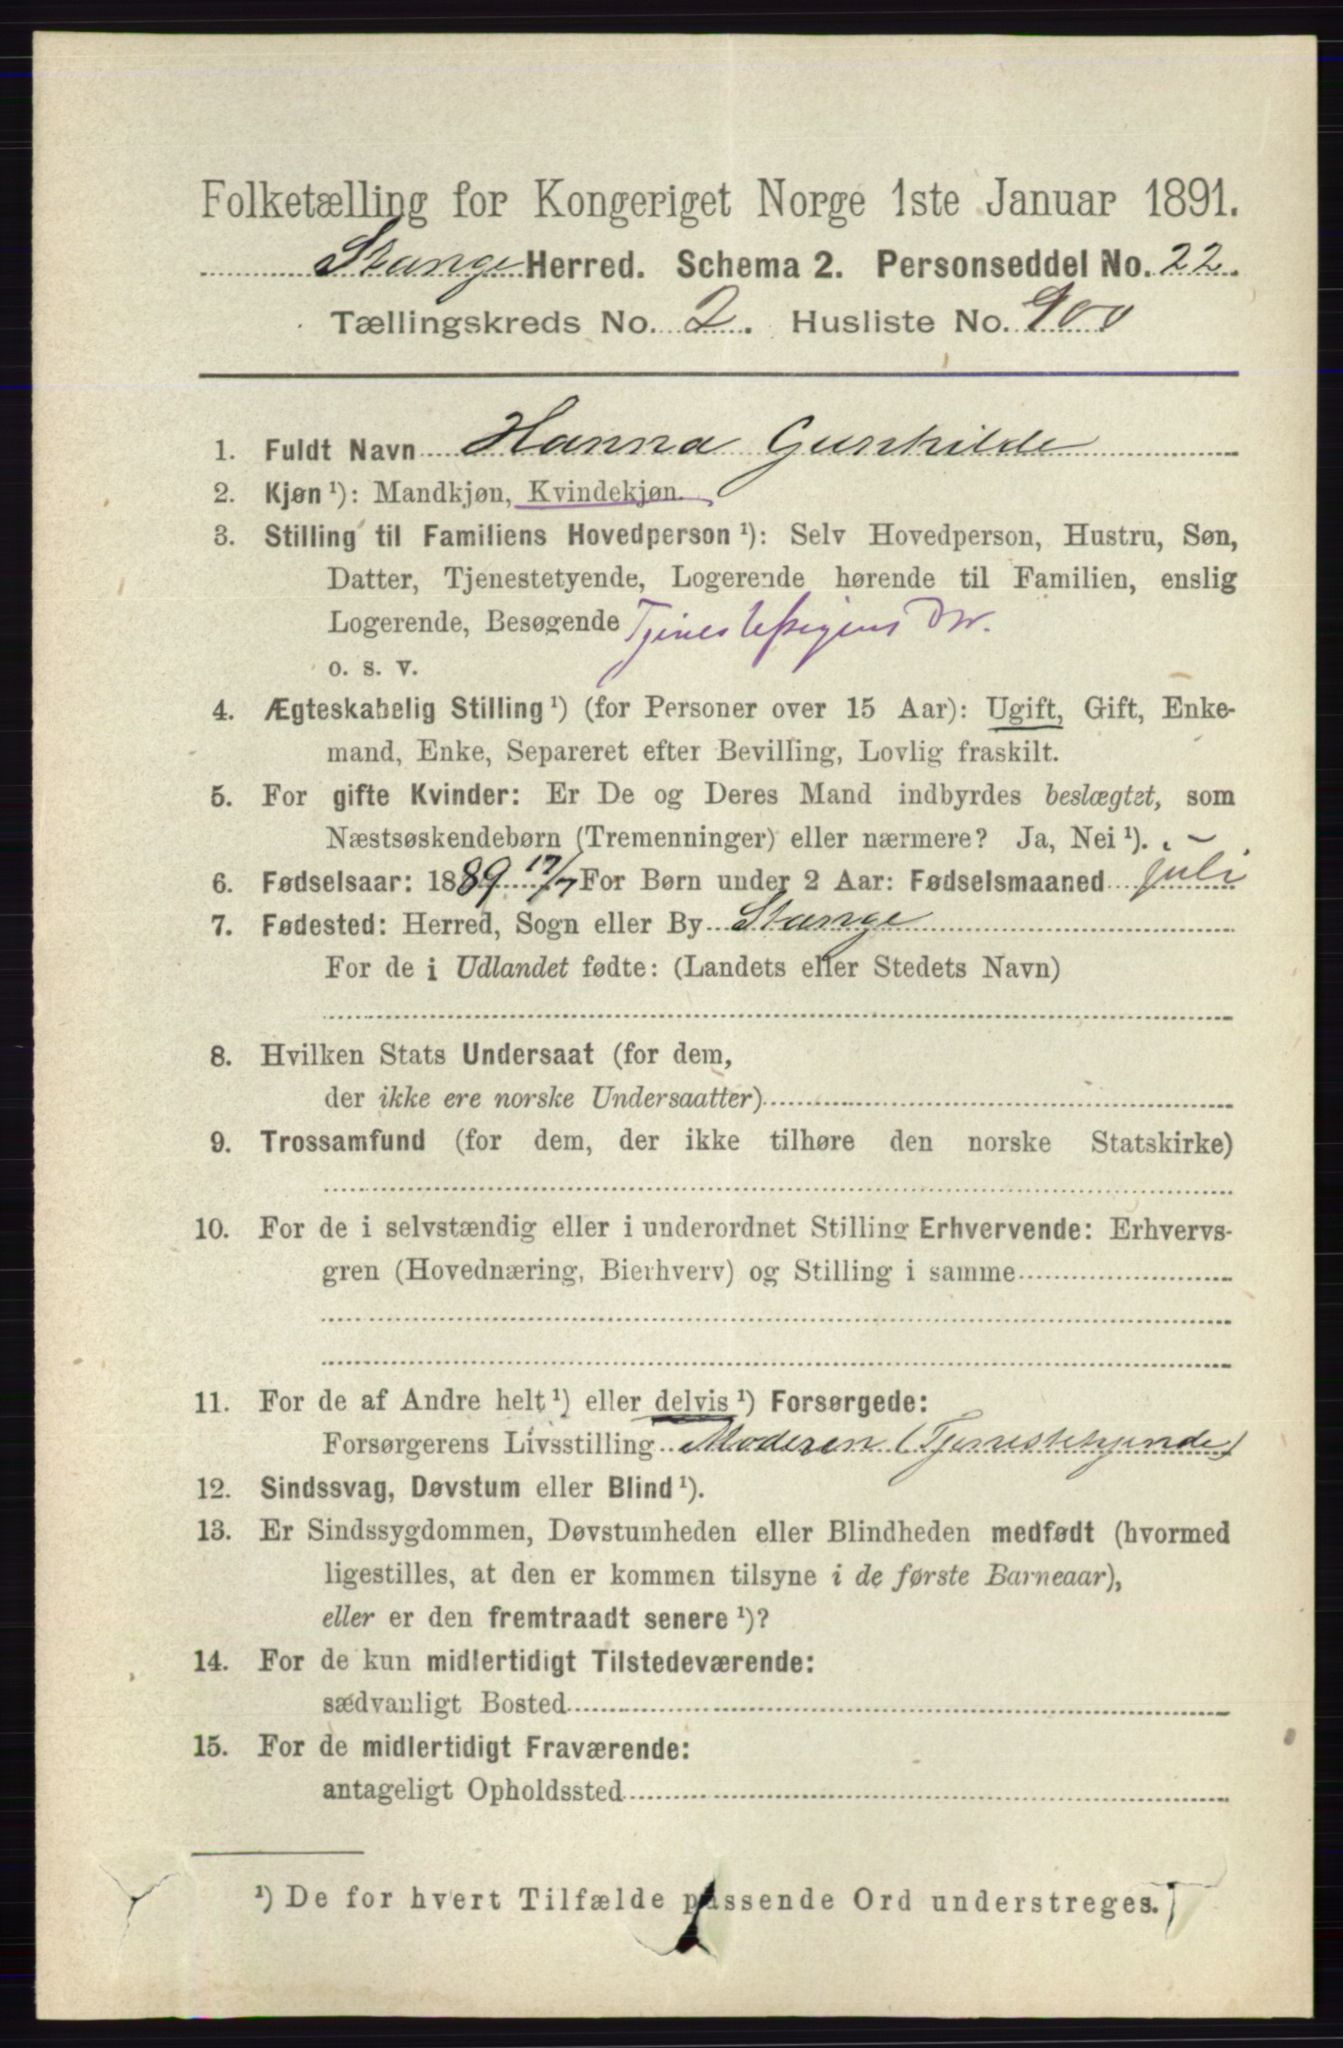 Folketælling for Kongeriget Norge 1ste Januar 1891.
Stange Herred. Schema 2. Personseddel No. 22.
Tællingskreds No. 2. Husliste No. 900
1. Fuldt Navn Hanna Gunhilde
2. Kjøn ¹): Mandkjøn, Kvindekjøn.
3. Stilling til Familiens Hovedperson ¹): Selv Hovedperson, Hustru, Søn,
Datter, Tjenestetyende, Logerende hørende til Familien, enslig
Logerende, Besøgende Tjenestepigens Dtr.
o. s. v.
4. Ægteskabelig Stilling ¹) (for Personer over 15 Aar): Ugift, Gift, Enke-
mand, Enke, Separeret efter Bevilling, Lovlig fraskilt.
5. For gifte Kvinder: Er De og Deres Mand indbyrdes beslægtet, som
Næstsøskendebørn (Tremenninger) eller nærmere? Ja, Nei ¹).
6. Fødselsaar: 1889 17/7 For Børn under 2 Aar: Fødselsmaaned juli
7. Fødested: Herred, Sogn eller By Stange
For de i Udlandet fødte: (Landets eller Stedets Navn)
8. Hvilken Stats Undersaat (for dem,
der ikke ere norske Undersaatter)
9. Trossamfund (for dem, der ikke tilhøre den norske Statskirke)
10. For de i selvstændig eller i underordnet Stilling Erhvervende: Erhvervs-
gren (Hovednæring, Bierhverv) og Stilling i samme
11. For de af Andre helt ¹) eller delvis ¹) Forsørgede:
Forsørgerens Livsstilling Moderen (Tjenestetyende)
12. Sindssvag, Døvstum eller Blind ¹).
13. Er Sindssygdommen, Døvstumheden eller Blindheden medfødt (hvormed
ligestilles, at den er kommen tilsyne i de første Barneaar),
eller er den fremtraadt senere ¹)?
14. For de kun midlertidigt Tilstedeværende:
sædvanligt Bosted
15. For de midlertidigt Fraværende:
antageligt Opholdssted
¹) De for hvert Tilfælde passende Ord understreges.